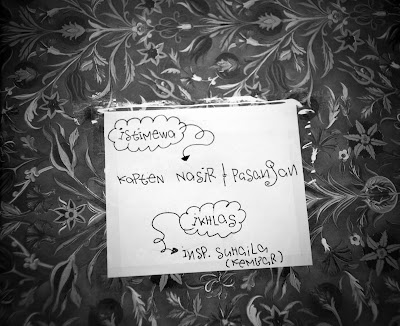 istimewa
Kapten Nasir & Pasangan
iKHLAS
insp. Suhaila
(KEMBAR)